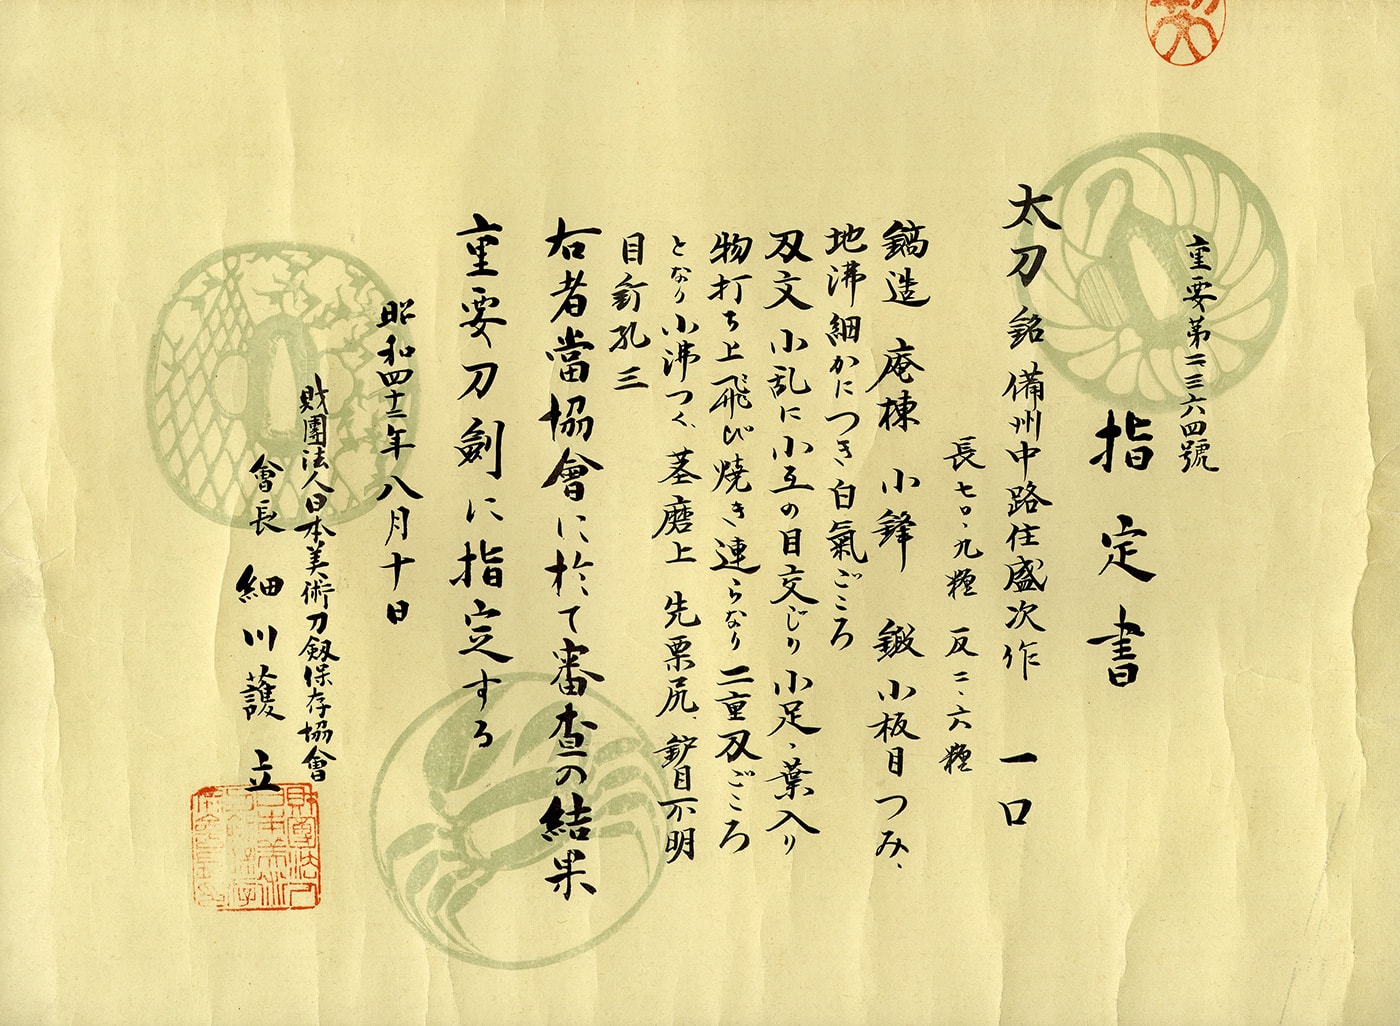 重要第二三六四號
指定書
太刀 銘 備州中路住盛次作 一口
長七〇、九糎 反二、六糎
鎬造 庵棟 小鋒 鍛 小板目つみ、
地沸細かにつき白氣ごころ
刄文 小乱に小互の目交じり 小足、葉入り
物打ち上飛び焼き連らなり 二重刄ごころ
となり小沸つく、茎磨上 先栗尻、鑢目不明
目釘孔三
右者當協會に於て審査の結果
重要刀劍に指定する
昭和四十三年八月十日
財團法人日本美術刀劔保存協會
會長 細川護立